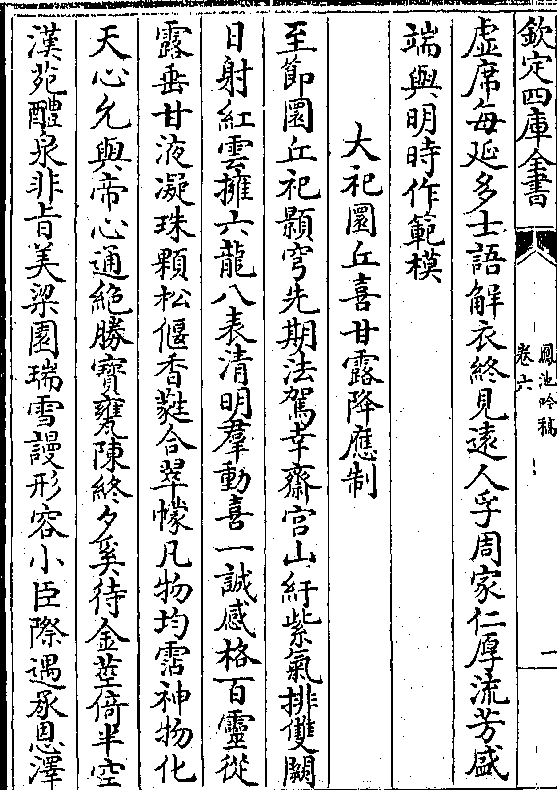 欽定四庫全書
鳳池吟稿
卷六
一
虛席每延多士語解衣終見遠人孚周家仁厚流芳盛
端與明時作範模
大祀圜丘喜甘露降應制
至節圜丘祀顥穹先期法駕幸齋宮山紆紫氣排雙闕
日射紅雲擁六龍八表清明羣動喜一誠感格百靈從
露垂甘液凝珠顆松偃香蕤合翠幪凡物均霑神物化
天心允與帝心通絶勝寳甕陳終夕奚待金莖倚半空
漢苑醴泉非旨美梁園瑞雪謾形容小臣際遇承恩澤